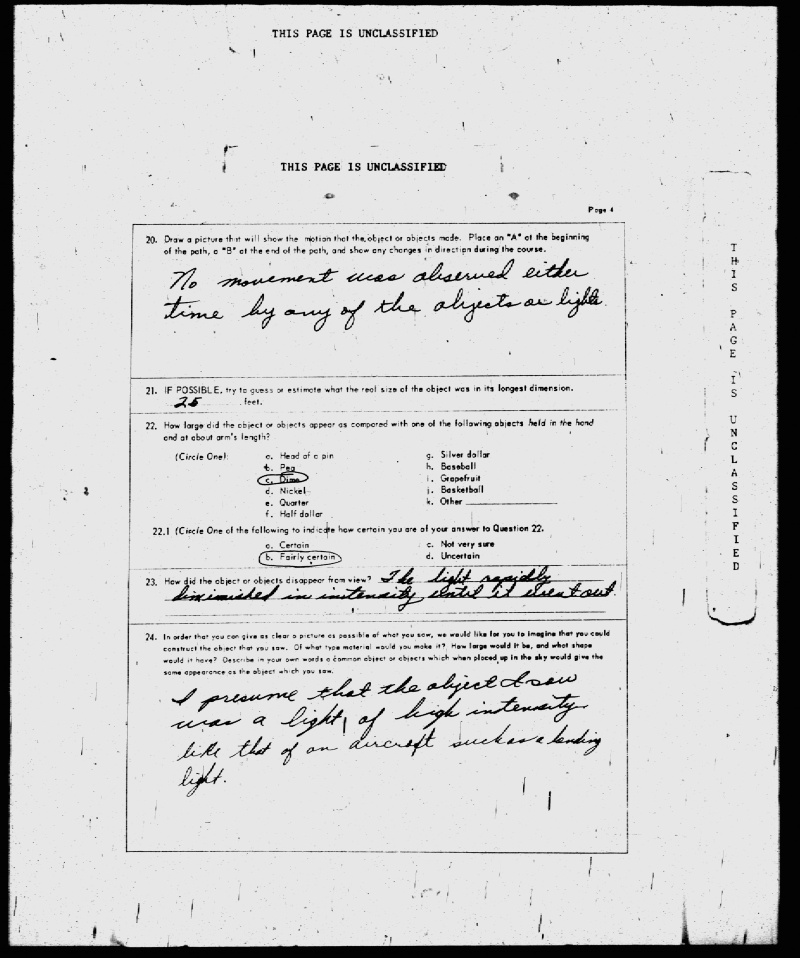 THIS PAGE IS UNCLASSIFIED
THIS PAGE IS UNCLASSIFIED
Page 4
20. Draw a picture that will show the motion that the object or objects made. Place an "A" at the beginning
of the path, a "B" at the end of the path, and show any changes in direction during the course.
No movement was observed either
time by any of the objects or lights
21. IF POSSIBLE, try to guess or estimate what the real size of the object was in its longest dimension.
25 feet.
22. How large did the object or objects appear as compared with one of the following objects held in the hand
and at about arm's length?
(Circle One): a. Head of a pin g. Silver dollar
b. Pea h. Baseball
c. Dime i. Grapefruit
d. Nickel j. Basketball
e. Quarter k. Other
f. Half dollar
22.1 (Circle One of the following to indicate how certain you are of your answer to Question 22.
a. Certain c. Not very sure
b. Fairly certain d. Uncertain
23. How did the object or objects disappear from view? The light rapidly
diminished in intensity until it went out.
24. In order that you can give as clear a picture as possible of what you saw, we would like for you to imagine that you could
construct the object that you saw. Of what type material would you make it? How large would it be, and what shape
would it have? Describe in your own words a common object or objects which when placed up in the sky would give the
same appearance as the object which you saw.
I presume that the object I saw
was a light, of high intensity
like that of an aircraft such as a landing
light.
THIS PAGE IS UNCLASSIFIED